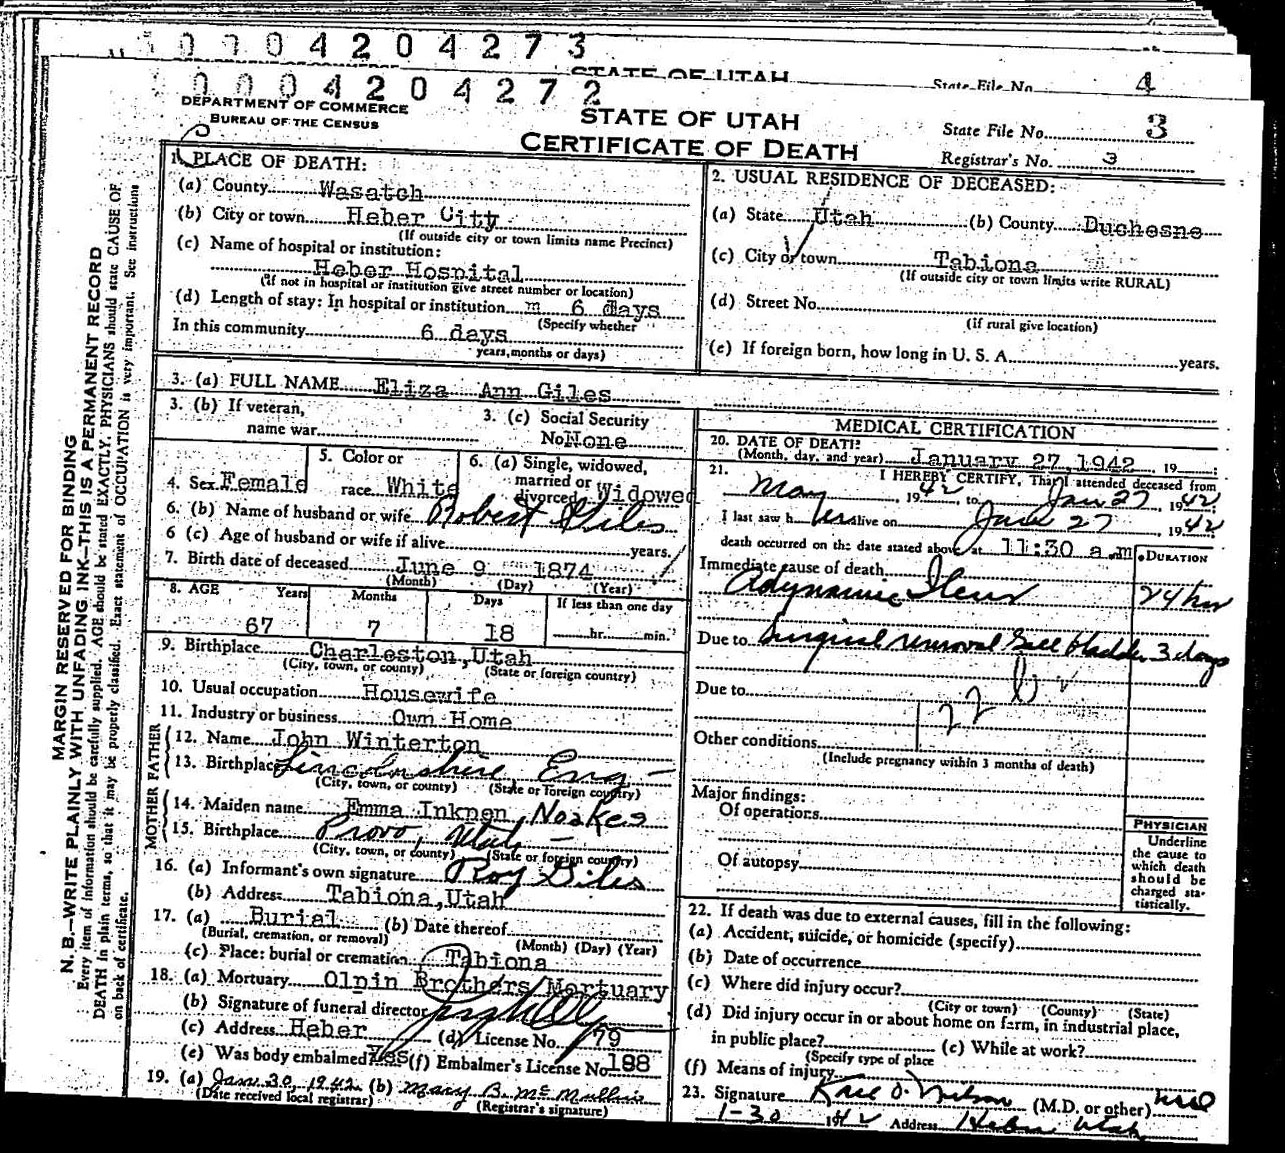 0004204273
STATE OF UTAH
State File No. 4
0004204272
DEPARTMENT OF COMMERCE
BUREAU OF THE CENSUS
STATE OF UTAH
CERTIFICATE OF DEATH
State File No. 3
Registrar's No. 3
MARGIN RESERVED FOR BINDING
N. B.—WRITE PLAINLY WITH UNFADING INK—THIS IS A PERMANENT RECORD
Every item of information should be carefully supplied. AGE should be stated EXACTLY. PHYSICIANS should state CAUSE OF
DEATH in plain terms, so that it may be properly classified. Exact statement of OCCUPATION is very important. See instructions
on back of certificate.
1. PLACE OF DEATH:
(a) County Wasatch
(b) City or town Heber City
(If outside city or town limits name Precinct)
(c) Name of hospital or institution:
Heber Hospital
(If not in hospital or institution give street number or location)
(d) Length of stay: In hospital or institution m 6 days
(Specify whether
In this community 6 days
years, months or days)
2. USUAL RESIDENCE OF DECEASED:
(a) State Utah (b) County Duchesne
(c) City or town Tabiona
(If outside city or town limits write RURAL)
(d) Street No.
(If rural give location)
(e) If foreign born, how long in U. S. A. years.
3. (a) FULL NAME Eliza Ann Giles
3. (b) If veteran,
name war
3. (c) Social Security
No. None
4. Sex Female
5. Color or
race White
6. (a) Single, widowed,
married or
divorced Widowed
6. (b) Name of husband or wife Robert Giles
6 (c) Age of husband or wife if alive years.
7. Birth date of deceased June 9 1874
(Month) (Day) (Year)
8. AGE Years Months Days If less than one day
67 7 18 hr. min.
9. Birthplace Charleston, Utah
(City, town, or county) (State or foreign country)
10. Usual occupation Housewife
11. Industry or business Own Home
FATHER
12. Name John Winterton
13. Birthplace Lincolnshire, Eng
(City, town, or county) (State or foreign country)
MOTHER
14. Maiden name Emma Inkpen Noakes
15. Birthplace Provo, Utah
(City, town, or county) (State or foreign country)
16. (a) Informant's own signature Roy Giles
(b) Address Tabiona, Utah
17. (a) Burial (b) Date thereof
(Burial, cremation, or removal) (Month) (Day) (Year)
(c) Place: burial or cremation Tabiona
18. (a) Mortuary Olpin Brothers Mortuary
(b) Signature of funeral director
(c) Address Heber (d) License No. 79
(e) Was body embalmed Yes (f) Embalmer's License No. 188
19. (a) Jan 30, 1942 (b) Mary B. McMullin
(Date received local registrar) (Registrar's signature)
MEDICAL CERTIFICATION
20. DATE OF DEATH:
(Month, day, and year) January 27, 1942 19
21. I HEREBY CERTIFY, That I attended deceased from
May 1942 to Jan 27 1942
I last saw her alive on Jan 27 1942
death occurred on the date stated above at 11:30 a.m
DURATION
Immediate cause of death
Adynamic Ileus 24 hrs
Due to Surgical removal Gall bladder 3 days
Due to
Other conditions
(Include pregnancy within 3 months of death)
Major findings:
Of operations
Of autopsy
PHYSICIAN
Underline
the cause to
which death
should be
charged sta-
tistically.
22. If death was due to external causes, fill in the following:
(a) Accident, suicide, or homicide (specify)
(b) Date of occurrence
(c) Where did injury occur?
(City or town) (County) (State)
(d) Did injury occur in or about home on farm, in industrial place,
in public place? (e) While at work?
(Specify type of place
(f) Means of injury
23. Signature Karl O. Nielson (M.D. or other)
1-30 1942 Address Heber Utah